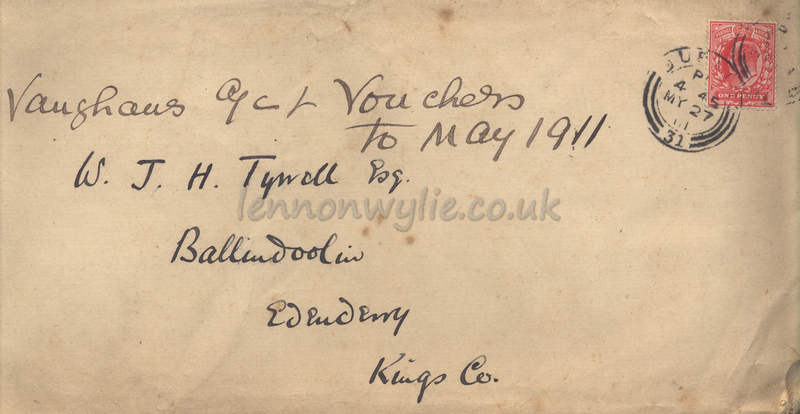 Vaughans a/c & Vouchers
to May 1911
W. J. H. Tyrrell Esq.
lennonwylie.co.uk
Ballindoolin
Edenderry
Kings Co.
4 45
MY 27
11
31
ONE PENNY